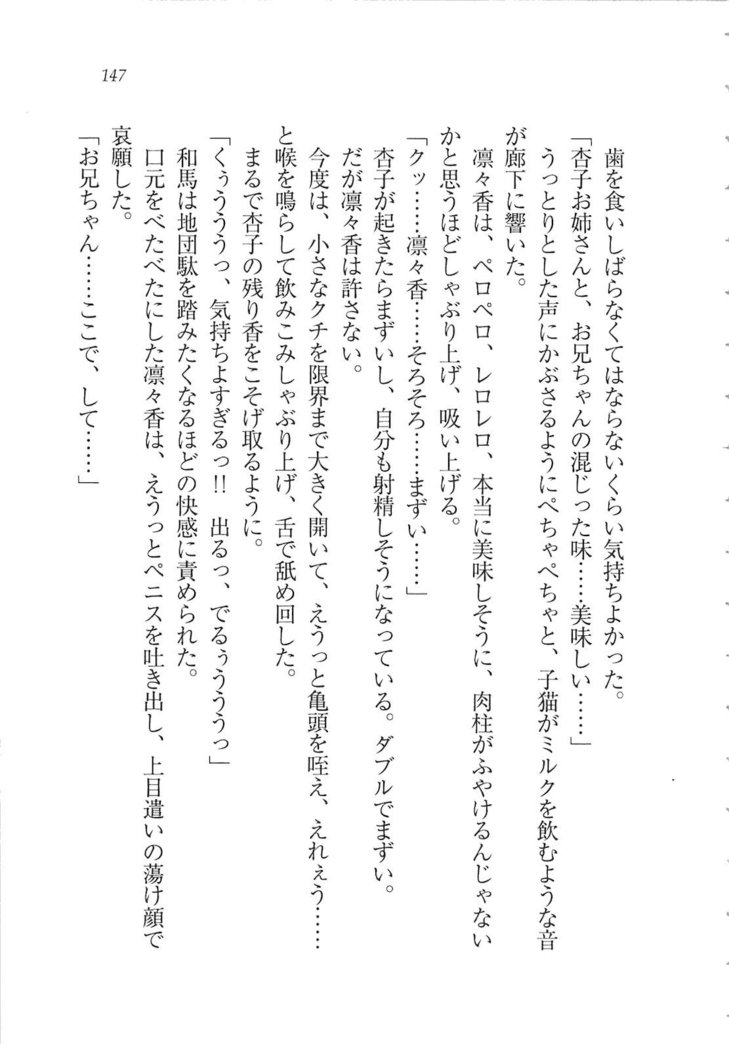 147
歯を食いしばらなくてはならないくらい気持ちよかった。
「杏子お姉さんと、お兄ちゃんの混じった味……美味しい……」
うっとりとした声にかぶさるようにぺちゃぺちゃと、子猫がミルクを飲むような音
が廊下に響いた。
凛々香は、ペロペロ、レロレロ、本当に美味しそうに、肉柱がふやけるんじゃない
かと思うほどしゃぶり上げ、吸い上げる。
「クッ……凛々香……そろそろ……まずい……」
杏子が起きたらまずいし、自分も射精しそうになっている。ダブルでまずい。
だが凛々香は許さない。
今度は、小さなクチを限界まで大きく開いて、えうっと亀頭を咥え、えれぇう……
と喉を鳴らして飲みこみしゃぶり上げ、舌で舐め回した。
まるで杏子の残り香をこそげ取るように。
「くぅうううっ、気持ちよすぎるっ!! 出るっ、でるぅうううっ」
和馬は地団駄を踏みたくなるほどの快感に責められた。
口元をべたべたにした凛々香は、えうっとペニスを吐き出し、上目遣いの蕩け顔で
哀願した。
「お兄ちゃん……ここで、して……」